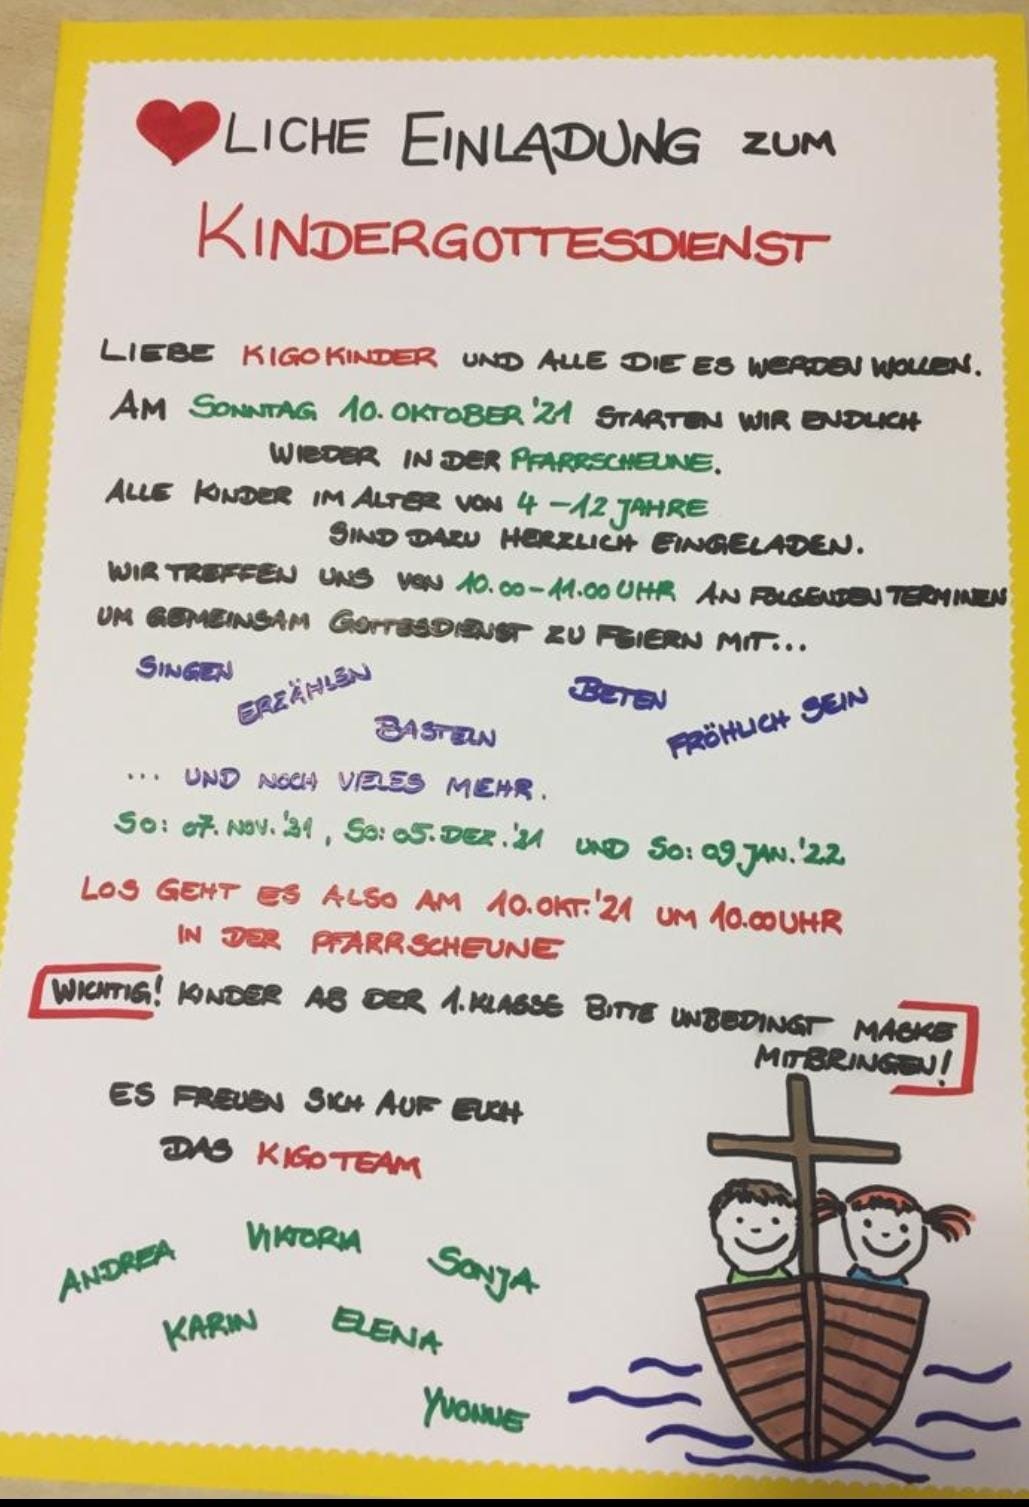 ❤LICHE EINLADUNG ZUM
KINDERGOTTESDIENST
LIEBE KIGOKINDER UND ALLE DIE ES WERDEN WOLLEN.
AM SONNTAG 10. OKTOBER '21 STARTEN WIR ENDLICH
WIEDER IN DER PFARRSCHEUNE.
ALLE KINDER IM ALTER VON 4-12 JAHRE
SIND DAZU HERZLICH EINGELADEN.
WIR TREFFEN UNS VON 10.00-11.00 UHR AN FOLGENDEN TERMINEN
UM GEMEINSAM GOTTESDIENST ZU FEIERN MIT...
SINGEN ERZÄHLEN BASTELN BETEN FRÖHLICH SEIN
... UND NOCH VIELES MEHR.
SO: 07. NOV. '21, SO: 05. DEZ. '21 UND SO: 09 JAN. '22
LOS GEHT ES ALSO AM 10. OKT. '21 UM 10.00 UHR
IN DER PFARRSCHEUNE
WICHTIG! KINDER AB DER 1. KLASSE BITTE UNBEDINGT MASKE
MITBRINGEN!
ES FREUEN SICH AUF EUCH
DAS KIGOTEAM
ANDREA VIKTORIA SONJA
KARIN ELENA
YVONNE